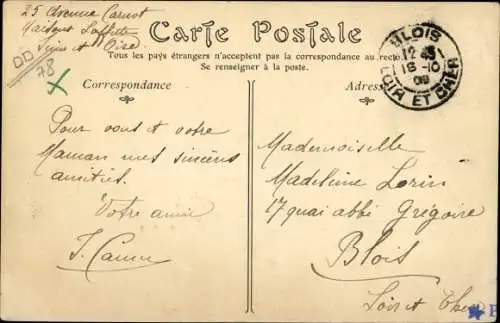 25 Avenue Carnot
Maisons Laffitte
Seine et Oise
DD
78
Carte Postale
Tous les pays étrangers n'acceptent pas la correspondance au recto.
Se renseigner à la poste.
Correspondance
Adresse
BLOIS
12
18-10
09
LOIR ET CHER
Pour vous et votre
Maman mes sincères
amitiés.
Votre amie
J.
Mademoiselle
Madeleine Lorin
17 quai abbé Grégoire
Blois
Loir et Cher